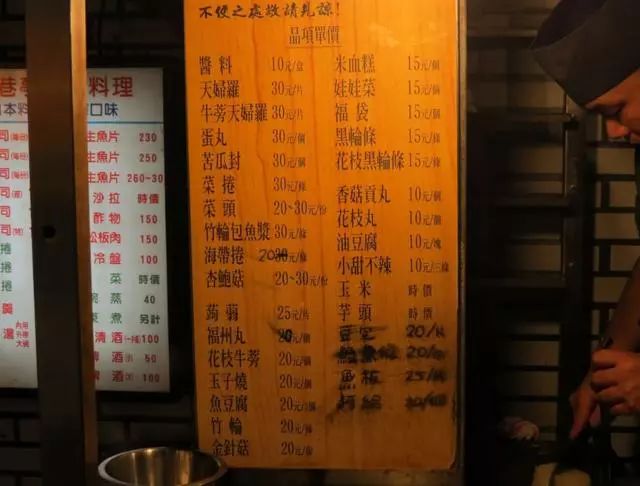 不便之處敬請見諒!
品項單價
醬料 10元/盒
天婦羅 30元/片
牛蒡天婦羅 30元/片
蛋丸 30元/個
苦瓜封 30元/個
菜捲 30元/條
菜頭 20~30元/份
竹輪包魚漿 30元/條
海帶捲 20元/條
杏鮑菇 20~30元/份
蒟蒻 25元/片
福州丸 20元/個
花枝牛蒡 20元/個
玉子燒 20元/個
魚豆腐 20元/個
竹輪 20元/條
金針菇 20元/份
米血糕 15元/個
娃娃菜 15元/個
福袋 15元/個
黑輪條 15元/條
花枝黑輪條 15元/條
香菇貢丸 10元/個
花枝丸 10元/個
油豆腐 10元/塊
小甜不辣 10元/三條
玉米 時價
芋頭 時價
20/
20/
魚板 25/
巷亭 料理
本料 口味
生魚片 230
生魚片 250
生魚片 260~30
沙拉 時價
酢物 150
松板肉 150
冷盤 100
菜 時價
蒸 40
煮 另計
清酒 100
啤酒 50
啤酒 100
司
司
司
司
司
捲
捲
捲
羹
湯